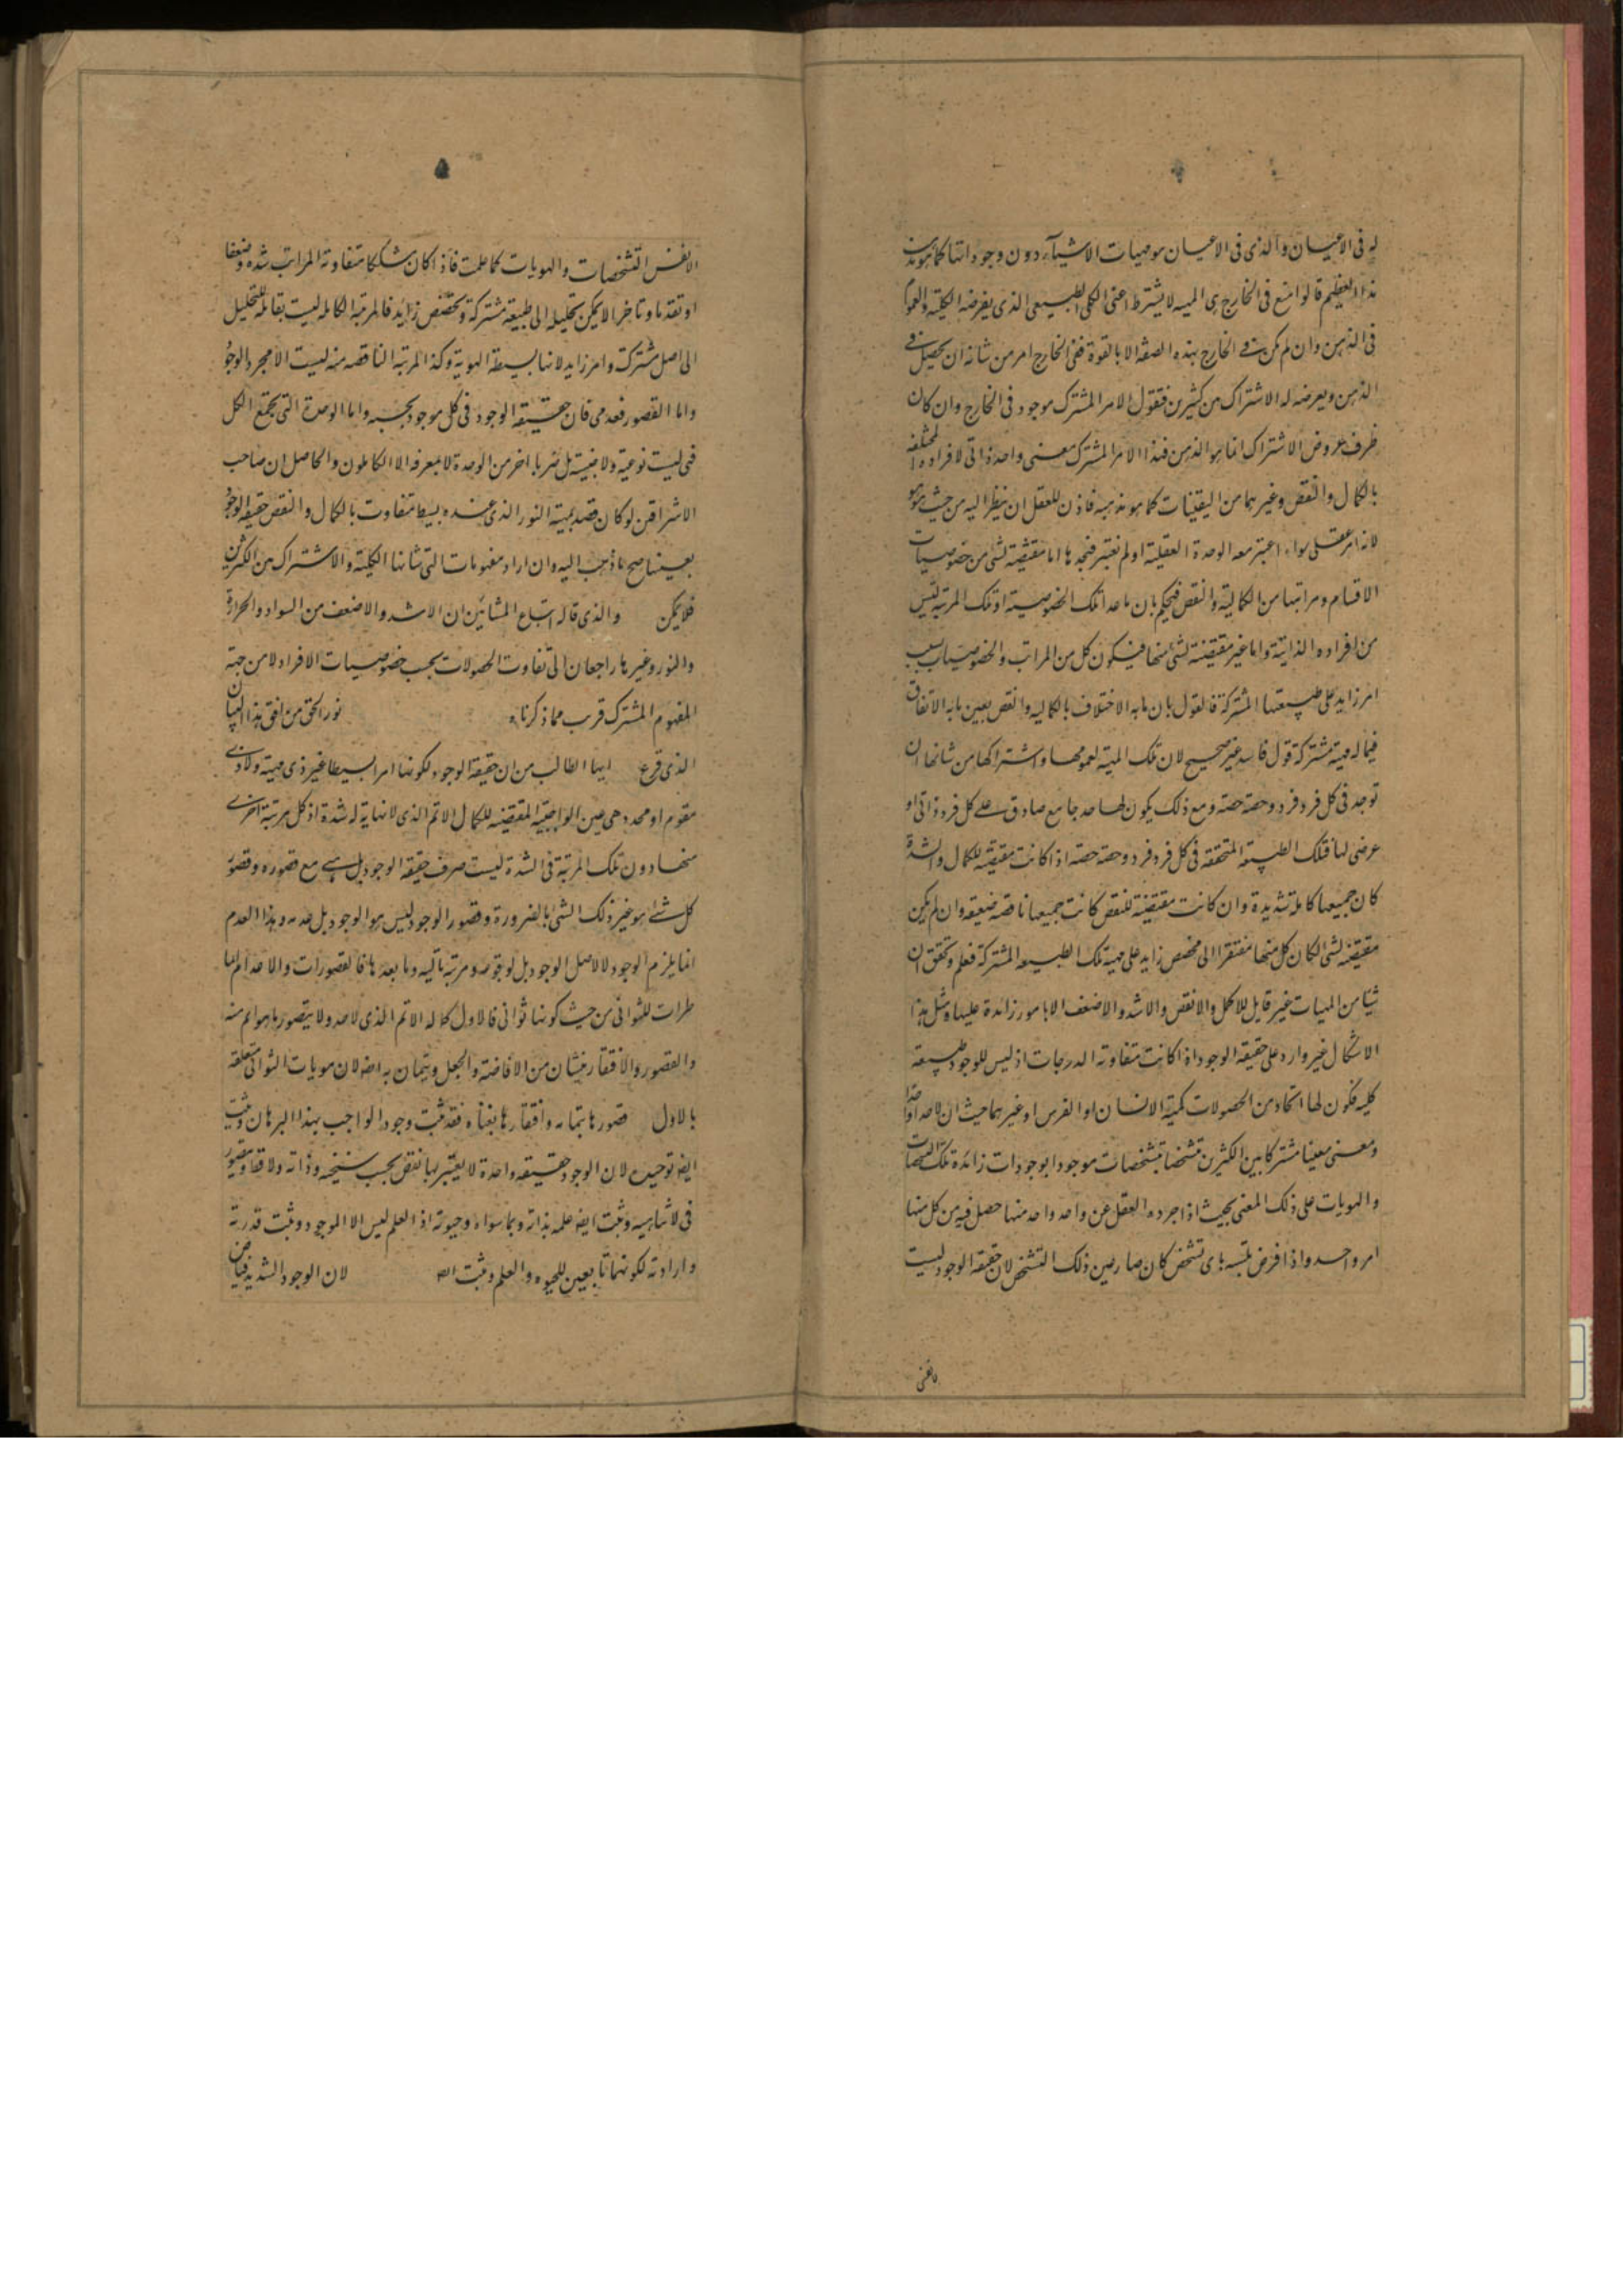 له فى الاعيان والذى فى الاعيان هو مهيات الاشيآء دون وجوداتها كما هو
هذا العظيم قالوا منع فى الخارج هى المهيه لا بشرط اعنى الكلى الطبيعى الذى يعرضه الكلية والعموم
فى الذهن وان لم يكن فى الخارج بهذه الصفة الا بالقوة ففى الخارج امر من شانه ان يحصل فى
الذهن ويعرضه له الاشتراك بين كثيرين فنقول الامر المشترك موجود فى الخارج وان كان
ظرف عروض الاشتراك انما هو الذهن فهذا الامر المشترك معنى واحد ذاتى لافراده المختلفه
بالكمال والنقص وغيرهما من اليقينيات كما هو مذهبه فاذن للعقل ان ينظر اليه من حيث هو هو
لانه امر عقلى سواء اعتبر معه الوحدة العقلية او لم نعتبر فنجدها اما مقتضية لشئ من خصوصيات
الاقسام ومراتبها من الكمالية والنقص فيحكم بان ماعدا تلك الخصوصية او تلك المرتبة ليس
من افراده الذاتية واما غير مقتضية لشئ منها فيكون كل من المراتب والخصوصيات بسبب
امر زايد على طبيعتها المشتركة فالقول بان ما به الاختلاف بالكماليه والنقص بعين ما به الاتفاق
فيما له مهية مشتركة قول فاسد غير صحيح لان تلك المهية لعمومها واشتراكها من شانها ان
توجد فى كل فرد فرد وحصة حصة ومع ذلك يكون لها حد جامع صادق على كل فرد ذاتى او
عرضى لها فتلك الطبيعة المتحققه فى كل فرد فرد وحصة حصة اذا كانت مقتضية للكمال والشدة
كان جميعها كاملة شديدة وان كانت مقتضية للنقص كانت جميعها ناقصة ضعيفه وان لم يكن
مقتضيه لشئ لكان كل منها مفتقرا الى مخصص زايد على مهية تلك الطبيعه المشتركة فعلم وتحقق ان
شيئا من المهيات غير قابل للاكمل والانقص والاشد والاضعف الا بامور زائدة عليها ومثل هذا
الاشكال غير وارد على حقيقة الوجود اذا كانت متفاوته الدرجات اذ ليس للوجود طبيعة
كليه فكون لها اتحاد من الحصولات كمهية الانسان او الفرس او غيرهما حيث ان لا حدا واحدا
ومعنى معينا مشتركا بين الكثيرين متشخصا بتشخصات موجودا بوجودات زائدة تلك التشخصات
والهويات على ذلك المعنى بحيث اذا اجرده العقل عن واحد واحد منها حصل فيه من كل منها
امر واحد واذا فرض تلبسه باى تشخص كان صار عين ذلك التشخص لان حقيقة الوجود ليست
الانفس التشخصات والهويات كما علمت فاذا كان مشككا متفاوتة المراتب شدة وضعفا
او تقدما وتاخرا لا يمكن تحليله الى طبيعة مشتركة وتخصص زايد فالمرتبة الكاملة ليست بقابلة للتحليل
الى اصل مشترك وامر زايد لانها بسيطة الهوية وكذا المرتبة الناقصه منه ليست الا مجرد الوجود
واما القصور فعدمى فان حقيقة الوجود فى كل موجود بحسبه واما الوحدة التى يجتمع الكل
فهى ليست نوعية ولا جنسية بل ضربا اخر من الوحدة لا يعرفه الا الكاملون والحاصل ان صاحب
الاشراق لو كان قصد بمهية النور الذى عنده بسيط متفاوت بالكمال والنقص حقيقة الوجود
بعينها صح ما ذهب اليه وان اراد مفهومات التى شانها الكلية والاشتراك بين الكثيرين
فلا يمكن والذى قاله اتباع المشائين ان الاشد والاضعف من السواد والحرارة
والنور وغيرها راجعان الى تفاوت الحصولات بحسب خصوصيات الافراد لا من جهة
المفهوم المشترك قرب مما ذكرناه نور الحق من افق هذا البيان
الذى قرع ايها الطالب من ان حقيقة الوجود لكونها امرا بسيطا غير ذى مهية ولا ذى
مقوم او محدد هى عين الواجبية المقتضيه للكمال الاتم الذى لا نهاية له شدة اذ كل مرتبة اخرى
منها دون تلك المرتبة فى الشدة ليست صرف حقيقة الوجود بل هى مع قصوره وقصور
كل شئ هو غير ذلك الشئ بالضرورة وقصور الوجود ليس هو الوجود بل عدمه وهذا العدم
انما يلزم الوجود لا لاصل الوجود بل لوقوعه ومرتبة تاليه وما بعدها فالقصورات والاعدام انما
طرات للثوانى من حيث كونها ثوانى فالاول كماله الاتم الذى لا حد ولا يتصور ما هو اتم منه
والقصور والافتقار ينشان من الافاضة والجعل ويتمان به ايضه لان هويات الثوانى متعلقة
بالاول قصورها بتمامه وافتقارها بغناه فقد ثبت وجود الواجب بهذا البرهان وثبت
ايضه توحيده لان الوجود حقيقة واحدة لا يعتريها نقص بحسب سنخه وذاته ولا
فى لا تناهيه وثبت ايضه علمه بذاته وبما سواه وحيوته اذ العلم ليس الا الوجود وثبت قدرته
وارادته لكونهما تابعين للحيوه والعلم وثبت ايضه لان الوجود الشديد فياض